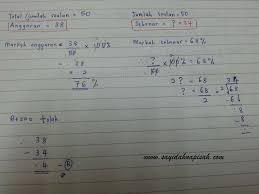 Total / jumlah soalan = 50
Anggaran = 38
Markah anggaran = 38 × 100%
50
= 38
× 2
76 %
Beza tolak
38
- 34
4
Jumlah soalan = 50
Sebenar = ? = 34
Markah sebenar = 68%
? × 100% = 68%
50
2 ? = 68
? = 68
2
34
2 68
-6
8
-8
www.sayidahnapisah.com